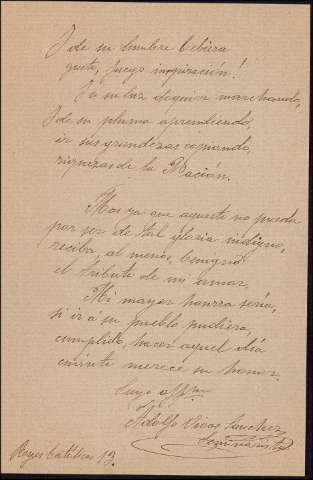 I de su lumbre bebiera
gusto, fuego inspiración!
I a su luz doquier marchando,
I de su pluma aprendiendo,
ir sus grandezas copiando,
riquezas de la Nación.
Mas ya que aquesto no pueda
por ser de tal gloria indigno,
reciba, al menos, benigno
el tributo de mi amor,
Mi mayor honra sería,
si ir á su pueblo pudiera,
cumplido, hacer aquel día
cuanto merece su honor.
Suyo affmo
Adolfo Vivas Sanchez
Seminarista
Reyes Católicos 13.